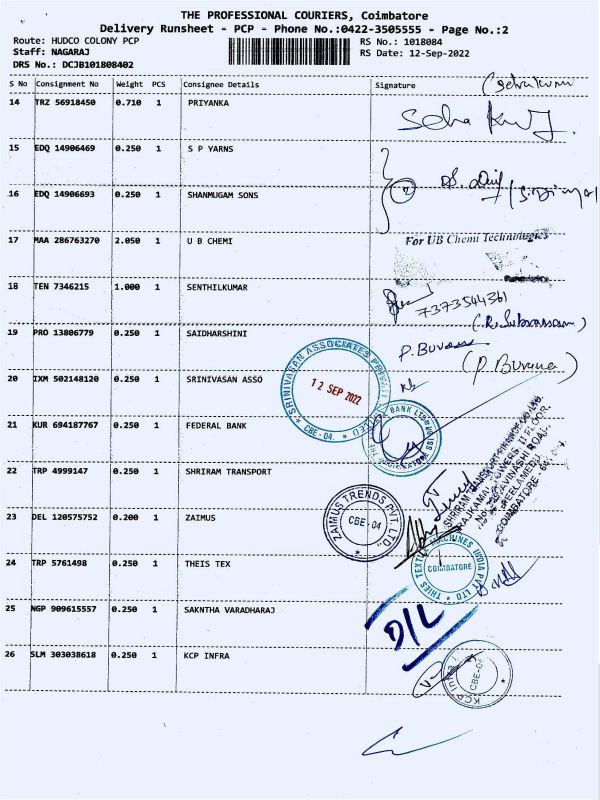 THE PROFESSIONAL COURIERS, Coimbatore
Delivery Runsheet - PCP - Phone No.:0422-3505555 - Page No.:2
Route: HUDCO COLONY PCP
RS No.: 1018084
Staff: NAGARAJ
RS Date: 12-Sep-2022
DRS No.: DCJB101808402
S No Consignment No Weight PCS Consignee Details Signature
14 TRZ 56918450 0.710 1 PRIYANKA
15 EDQ 14906469 0.250 1 S P YARNS
16 EDQ 14906693 0.250 1 SHANMUGAM SONS
17 MAA 286763270 2.050 1 U B CHEMI
For UB Chemi Technologies
18 TEN 7346215 1.000 1 SENTHILKUMAR
7373544361
19 PRO 13806779 0.250 1 SAIDHARSHINI
P. Buvana
(P. Buvana)
20 IXM 502148120 0.250 1 SRINIVASAN ASSO
SRINIVASAN ASSOCIATES PRIVATE LIMITED
12 SEP 2022
CBE-04.
21 KUR 694187767 0.250 1 FEDERAL BANK
BANK LTD
22 TRP 4999147 0.250 1 SHRIRAM TRANSPORT
SHRIRAM TRANSPORT FINANCE CO. LTD.
RAJKAMAL TOWERS II FLOOR,
AVINASHI ROAD,
PEELAMEDU
COIMBATORE
23 DEL 120575752 0.200 1 ZAIMUS
ZAIMUS TRENDS PVT. LTD.
CBE-04
24 TRP 5761498 0.250 1 THEIS TEX
THIES TEXTILE MACHINES INDIA PVT LTD
COIMBATORE
25 NGP 909615557 0.250 1 SAKNTHA VARADHARAJ
D/L
26 SLM 303038618 0.250 1 KCP INFRA
KCP Infra
CBE-04